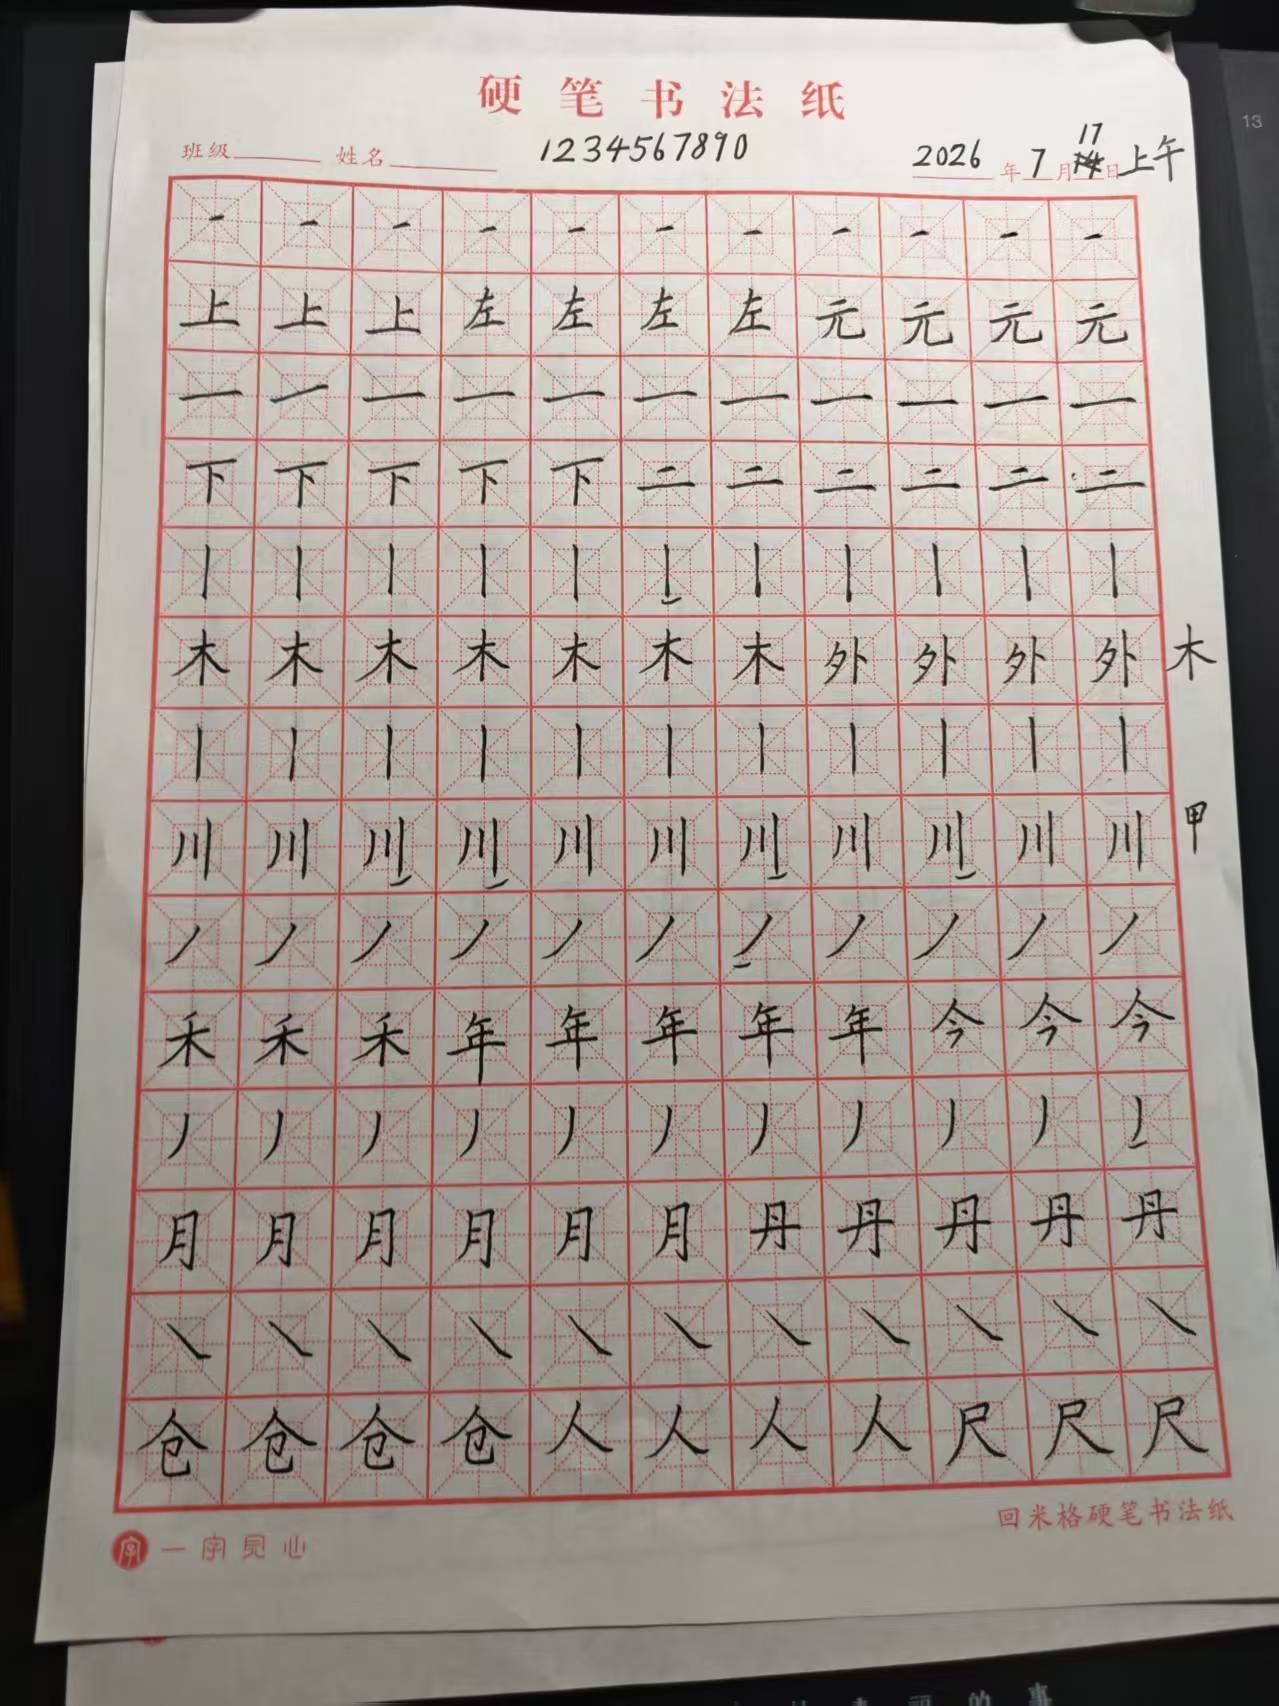 硬笔书法纸
班级 姓名 1234567890 2026年7月17日上午
一一一一一一一一一一一
上上上左左左左元元元元
一一一一一一一一一一一
下下下下下二二二二二二
丨丨丨丨丨丨丨丨丨丨丨
木木木木木木木外外外外 木
丨丨丨丨丨丨丨丨丨丨丨
川川川川川川川川川川川 甲
丿丿丿丿丿丿丿丿丿丿丿
禾禾禾年年年年年今今今
丿丿丿丿丿丿丿丿丿丿丿
月月月月月月丹丹丹丹丹
㇏㇏㇏㇏㇏㇏㇏㇏㇏㇏㇏
仓仓仓仓人人人人尺尺尺
回米格硬笔书法纸
字 一字见心
13
的事